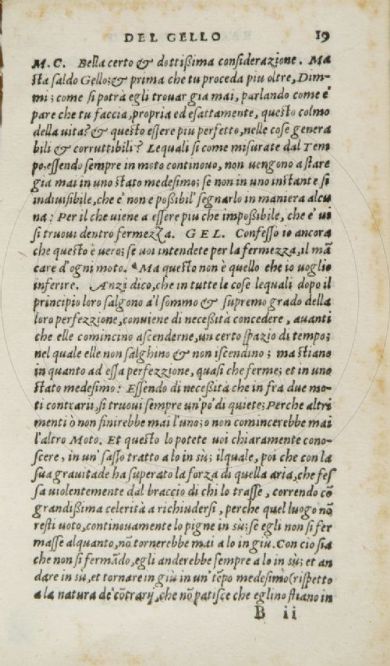 DEL GELLO 19
M. C. Bella certo & dottißima considerazione. Ma
sta saldo Gello; & prima che tu proceda piu oltre, Dim-
mi; come si potrà egli trouar gia mai, parlando come e'
pare che tu faccia, propria ed esattamente, questo colmo
della vita? & questo essere piu perfetto, nelle cose genera
bili & corruttibili? Lequali si come misurate dal Tem
po, essendo sempre in moto continouo, non vengono a stare
gia mai in uno stato medesimo; se non in uno instante si
indiuisibile, che è non e poßibil' segnarlo in maniera alcu
na: Per il che uiene a essere piu che impoßibile, che è ui
si truoui dentro fermezza. GEL. Confesso io ancora
che questo è uero; se uoi intendete per la fermezza, il mā
care d'ogni moto. Ma questo non è quello che io uoglio
inferire. Anzi dico, che in tutte le cose lequali dopo il
principio loro salgono a'l sommo & supremo grado della
loro perfezzione, conuiene di neceßità concedere, auanti
che elle comincino ascenderne, un certo spazio di tempo;
nel quale elle non salghino & non iscendino; ma stiano
in quanto ad essa perfezzione, quasi che ferme; et in uno
stato medesimo: Essendo di neceßità che in fra due mo-
ti contrarii, si truoui sempre un'pò di quiete; Perche altri
menti ò non finirebbe mai l'uno; o non comincerebbe mai
l'altro Moto. Et questo lo potete uoi chiaramente cono-
scere, in un' sasso tratto a lo in sù; ilquale, poi che con la
sua grauitade ha superato la forza di quella aria, che fes
sa uiolentemente dal braccio di chi lo trasse, correndo cō
grandißima celerità a richiudersi, perche quel luogo nō
resti uoto, continouamente lo pigne in sù; se egli non si fer
masse alquanto, nō tornerebbe mai a lo in giu. Con cio sia
che non si fermādo, egli anderebbe sempre a lo in sù; et an
dare in sù, et tornare in giù in un' tēpo medesimo (rispetto
a la natura de' cōtrarij, che nō patisce che eglino stiano in
B ii